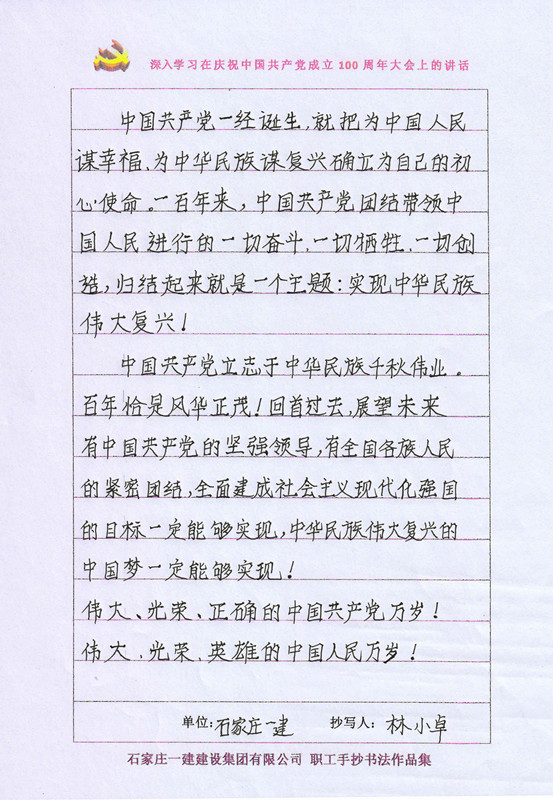 深入学习在庆祝中国共产党成立100周年大会上的讲话
中国共产党一经诞生,就把为中国人民
谋幸福、为中华民族谋复兴确立为自己的初
心使命。一百年来,中国共产党团结带领中
国人民进行的一切奋斗、一切牺牲、一切创
造,归结起来就是一个主题:实现中华民族
伟大复兴!
中国共产党立志于中华民族千秋伟业。
百年恰是风华正茂!回首过去,展望未来
有中国共产党的坚强领导,有全国各族人民
的紧密团结,全面建成社会主义现代化强国
的目标一定能够实现,中华民族伟大复兴的
中国梦一定能够实现!
伟大、光荣、正确的中国共产党万岁!
伟大、光荣、英雄的中国人民万岁!
单位:石家庄一建 抄写人:林小卓
石家庄一建建设集团有限公司 职工手抄书法作品集